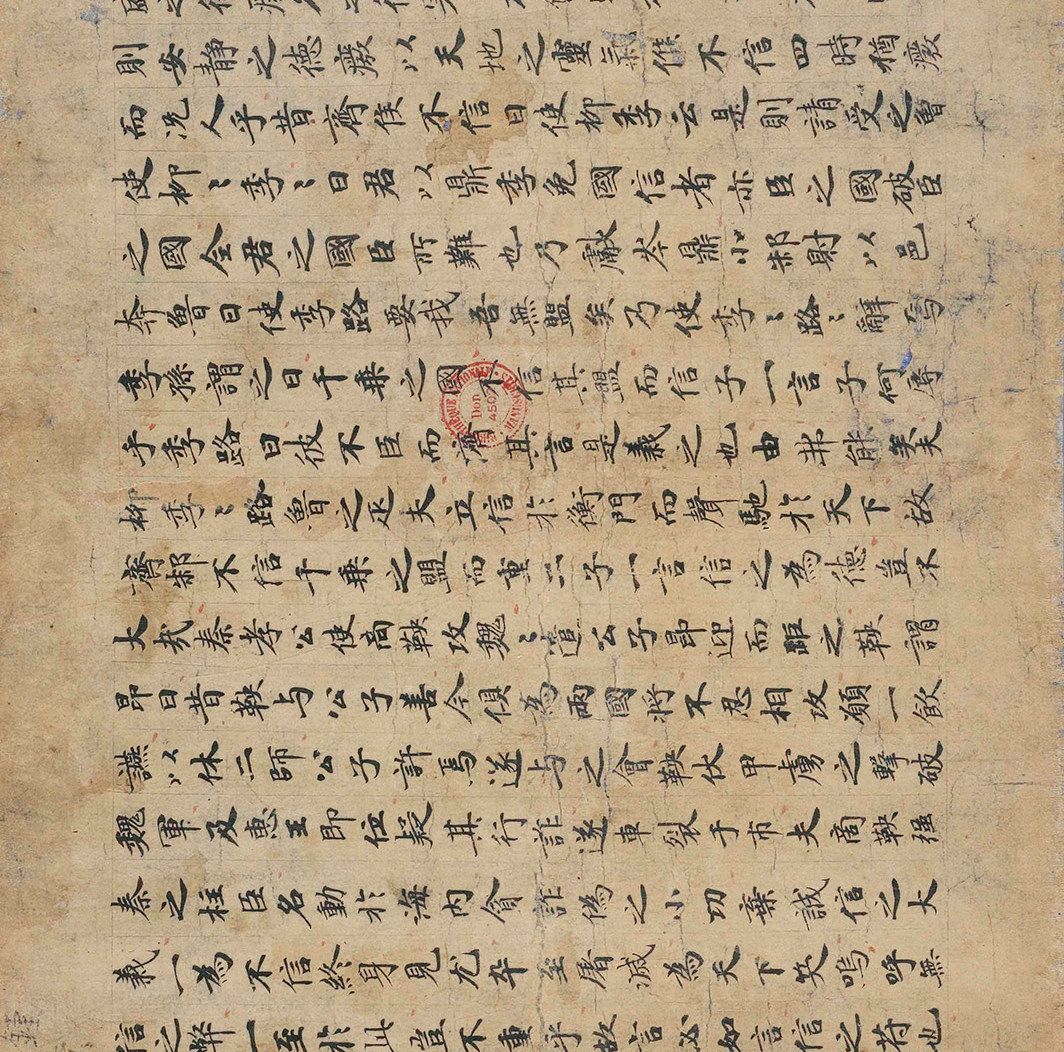 則安靜之德廢以天地之靈氣候不信四時猶廢
而况人乎昔齊侯不信曰使柳季云是則請受之魯
使柳〻季〻曰君以鼎季免國信者亦臣之國破臣
之國全君之國臣所難也乃獻岑鼎小邾射以邑
奔魯曰使季路要我吾無盟矣乃使季〻路〻辭焉
季孫謂之曰千乗之國不信其盟而信子一言子何辱
乎季路曰彼不臣而濟其言是義之也由弗能矣夫
柳季〻路魯之疋夫立信於衡門而聲馳於天下故
齊邾不信千乗之盟而重二子一言信之為德豈不
大哉秦孝公使商鞅攻魏〻遣公子昂迎而距之鞅謂
昂曰昔鞅与公子善今俱為兩國將不忍相攻願一飲
讌以休二師公子許焉遂与之會鞅伏甲虜之擊破
魏軍及惠王即位疑其行詐遂車裂于市夫商鞅強
秦之柱臣名動於海内貪詐偽之小功棄誠信之大
義一為不信終身見尤卒至屠滅為天下笑嗚呼無
信之弊一至於此豈不重乎故言必如言信之符也
Don